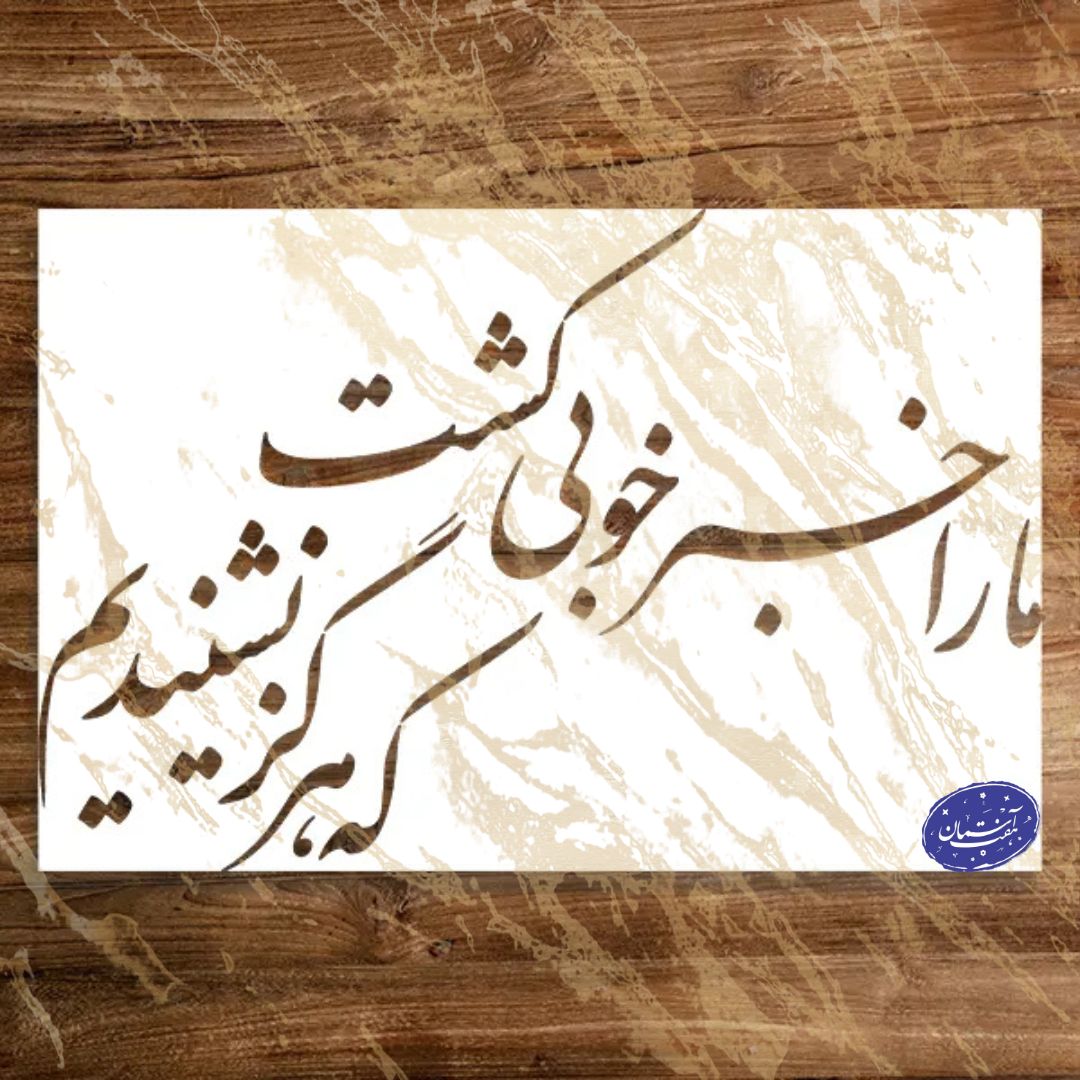 ما را خبر خوبی کشت
که هرگز نشنیدیم
هفت آسمان